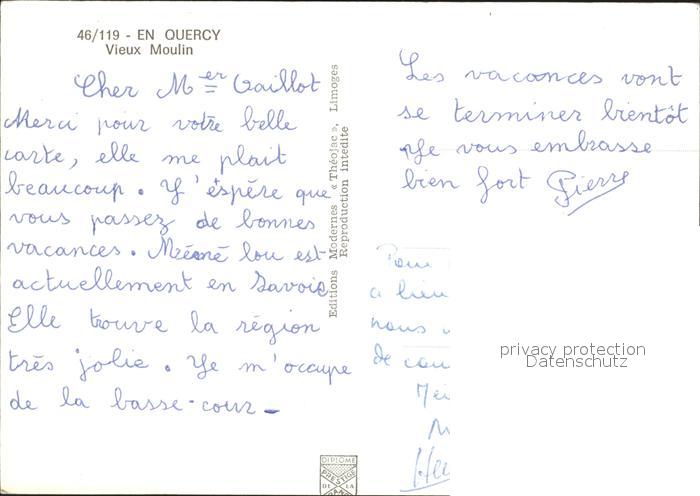 46/119 - EN QUERCY
Vieux Moulin
Cher Mer Gaillot
Merci pour votre belle
carte, elle me plait
beaucoup. J'éspère que
vous passez de bonnes
vacances. Mémé lou est
actuellement en Savoie
Elle trouve la région
très jolie. Je m'occupe
de la basse-cour -
Editions Modernes « Théojac », Limoges
Reproduction interdite
Les vacances vont
se terminer bientôt
Je vous embrasse
bien fort Pierre
Pour
a lieu
nous
de
privacy protection
Datenschutz
DIPLOME
PRESTIGE
DE LA